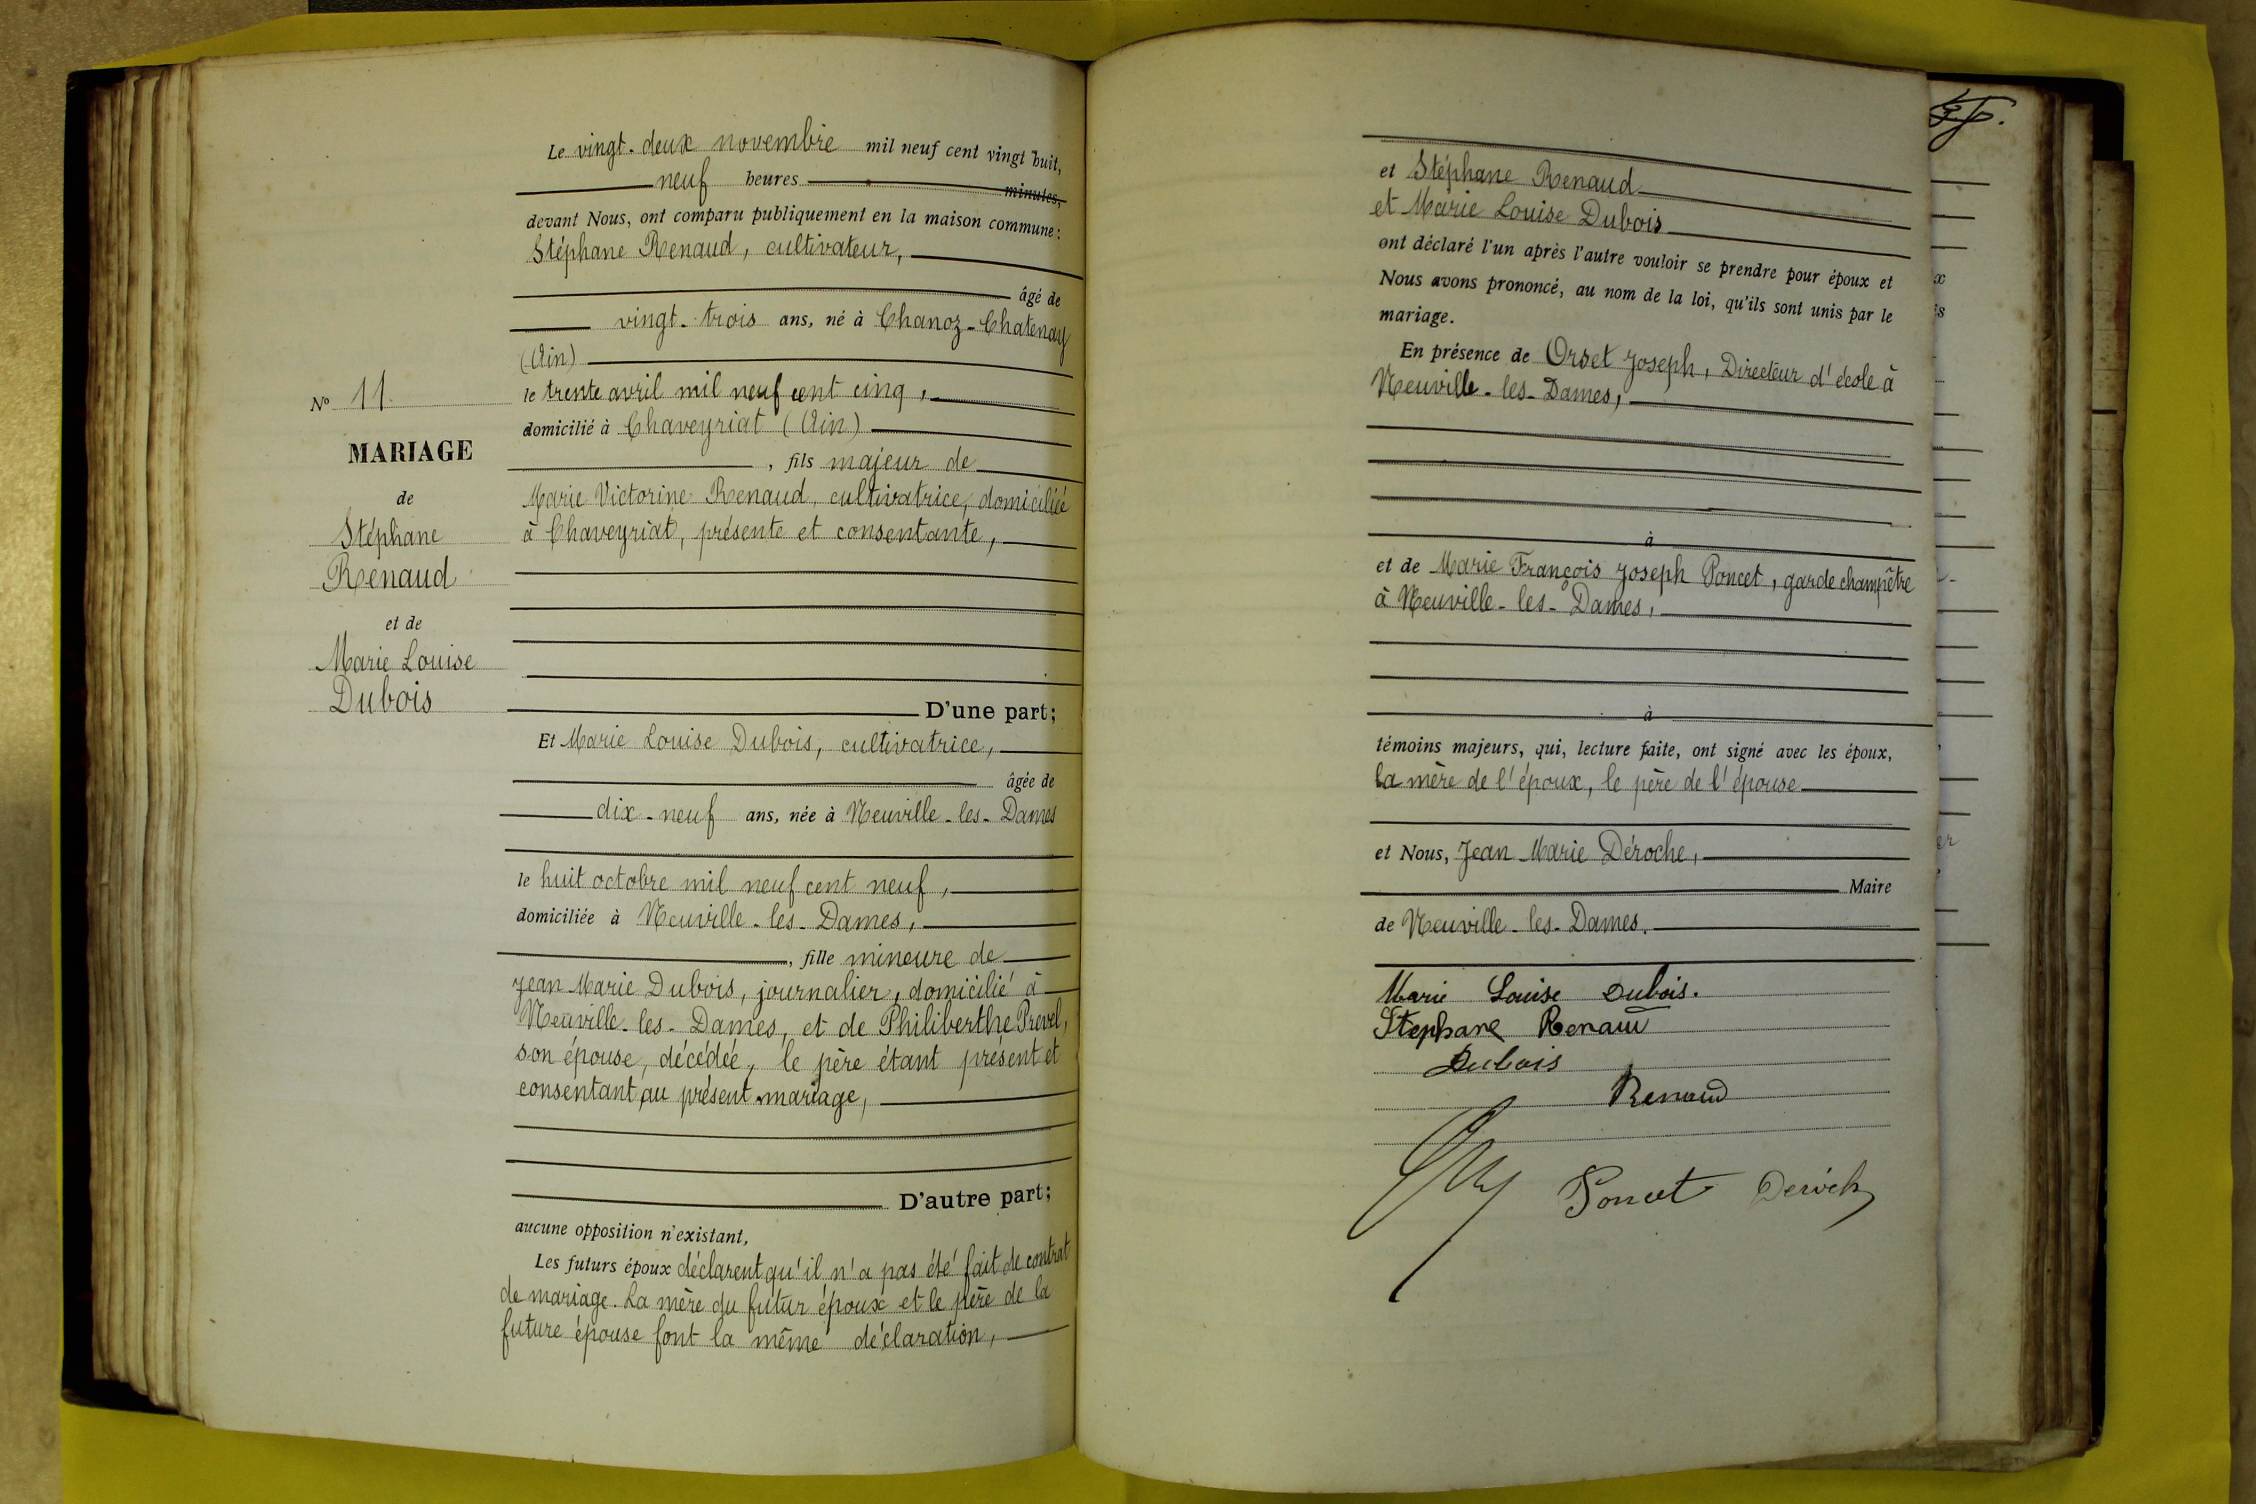 Le vingt-deux novembre mil neuf cent vingt huit,
neuf heures minutes,
devant Nous, ont comparu publiquement en la maison commune :
Stéphane Renaud, cultivateur,
âgé de
vingt-trois ans, né à Chanoz-Chatenay
(Ain)
le trente avril mil neuf cent cinq,
domicilié à Chaveyriat (Ain)
, fils majeur de
Marie Victorine Renaud, cultivatrice, domiciliée
à Chaveyriat, présente et consentante,
D'une part;
Nº 11
MARIAGE
de
Stéphane
Renaud
et de
Marie Louise
Dubois
Et Marie Louise Dubois, cultivatrice,
âgée de
dix-neuf ans, née à Neuville-les-Dames
le huit octobre mil neuf cent neuf,
domiciliée à Neuville-les-Dames,
, fille mineure de
Jean Marie Dubois, journalier, domicilié à
Neuville-les-Dames, et de Philiberthe Prevel,
son épouse, décédée, le père étant présent et
consentant au présent mariage,
D'autre part;
aucune opposition n'existant,
Les futurs époux déclarent qu'il n'a pas été fait de contrat
de mariage. La mère du futur époux et le père de la
future épouse font la même déclaration,
et Stéphane Renaud
et Marie Louise Dubois
ont déclaré l'un après l'autre vouloir se prendre pour époux et
Nous avons prononcé, au nom de la loi, qu'ils sont unis par le
mariage.
En présence de Orset Joseph, Directeur d'école à
Neuville-les-Dames,
à
et de Marie François Joseph Poncet, garde champêtre
à Neuville-les-Dames,
à
témoins majeurs, qui, lecture faite, ont signé avec les époux,
la mère de l'époux, le père de l'épouse
et Nous, Jean Marie Déroche,
Maire
de Neuville-les-Dames.
Marie Louise Dubois.
Stephane Renaud
Dubois
Renaud
Poncet